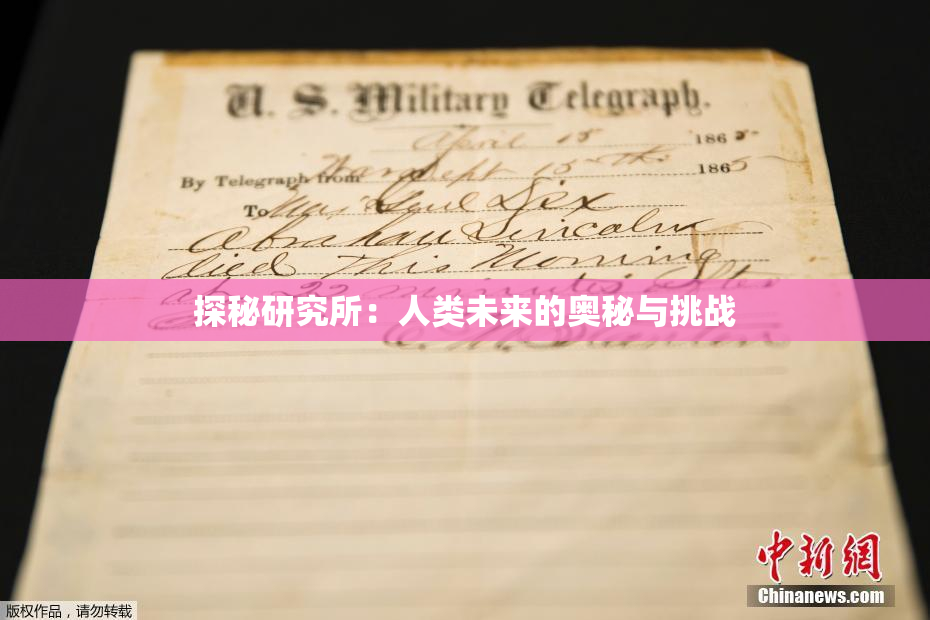 U. S. Military Telegraph.
April 15 1865
By Telegraph from War Dept 15th 1865
To Maj Genl Dix
Abraham Lincoln
died This Morning
at 22 minutes after
探秘研究所：人类未来的奥秘与挑战
E. M. Stanton
中新网
Chinanews.com
版权作品，请勿转载